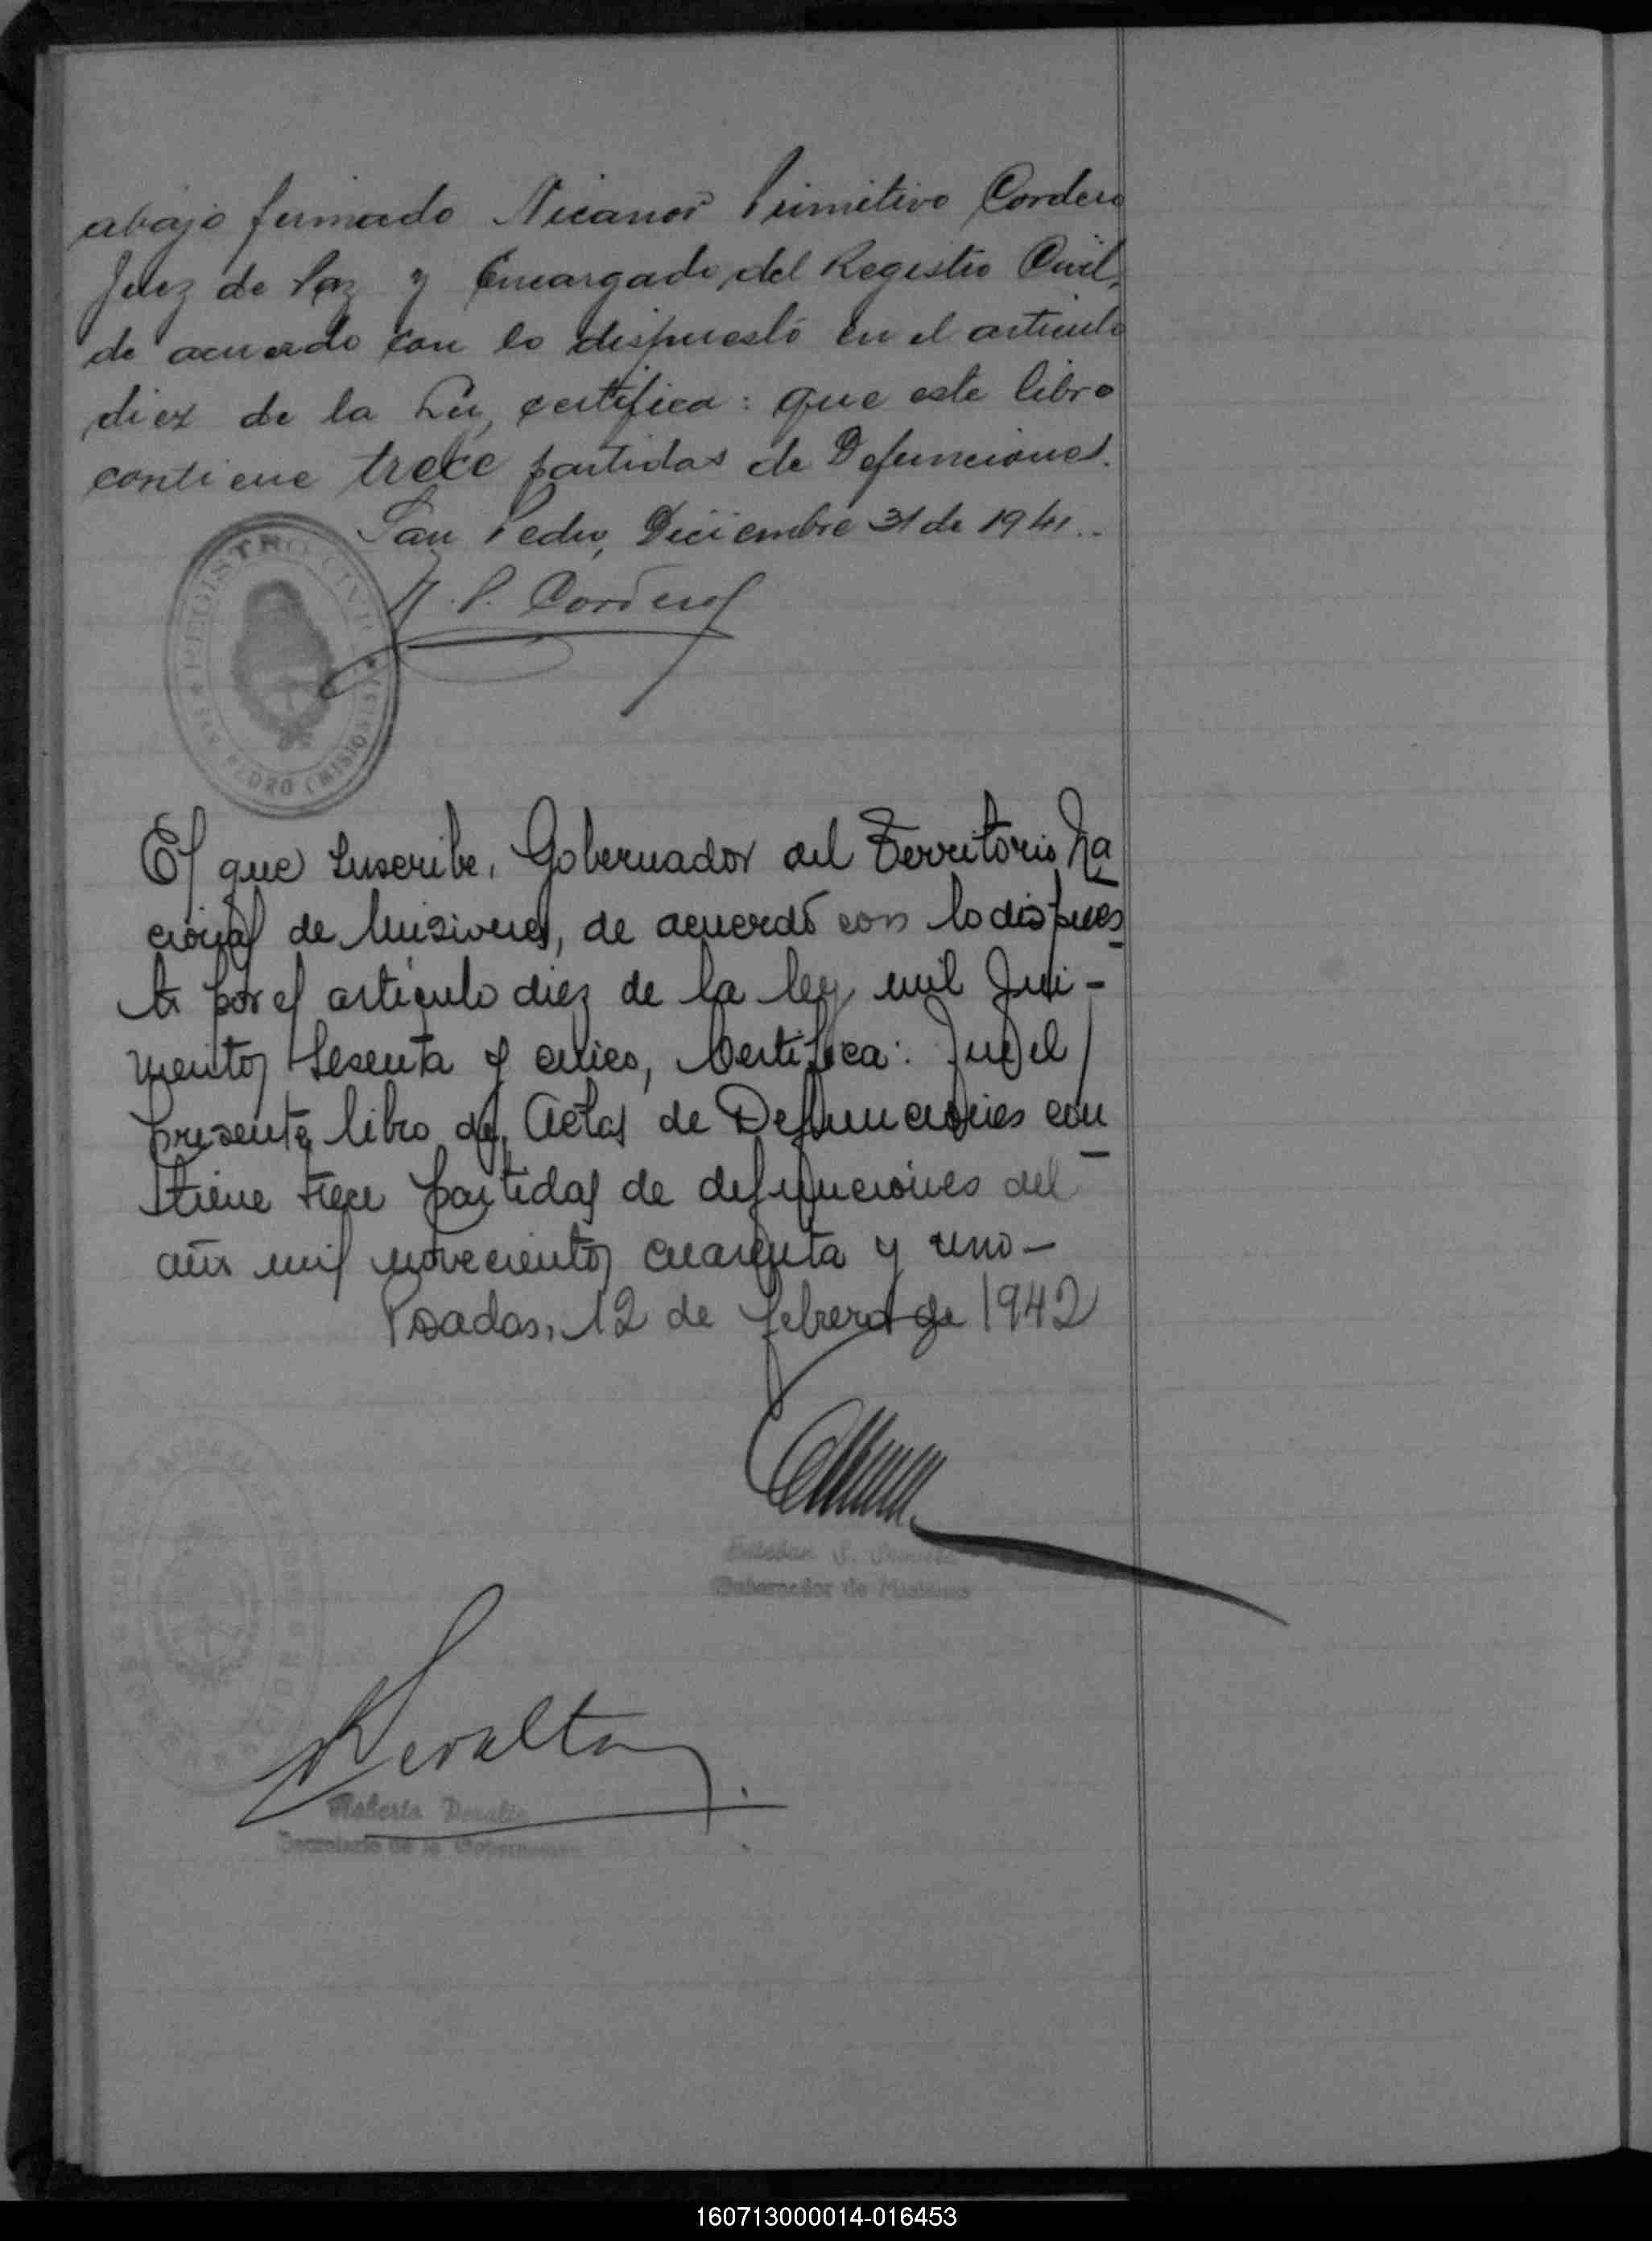 abajo firmado Nicanor Primitivo Cordero
Juez de Paz y Encargado del Registro Civil,
de acuerdo con lo dispuesto en el articulo
diez de la Ley, certifica: que este libro
contiene trece partidas de Defunciones.
San Pedro, Diciembre 31 de 1941..
N. P. Cordero
REGISTRO CIVIL
SAN PEDRO (MISIONES)
El que suscribe, Gobernador del Territorio Na
cional de Misiones, de acuerdo con lo dispues
to por el artículo diez de la ley mil qui-
nientos sesenta y cinco, Certifica: Que el
presente libro de Actas de Defunciones con
tiene trece partidas de defunciones del
año mil novecientos cuarenta y uno-
Posadas, 12 de febrero de 1942
Esteban
Gobernador de Misiones
Peralta
Roberto Peralta
Secretario de la Gobernación
160713000014-016453